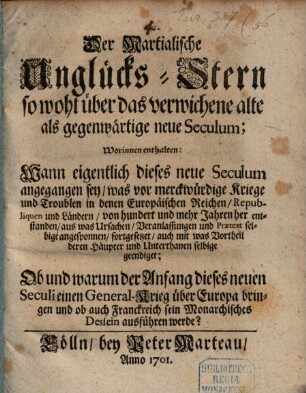 4.
Der Martialische
Unglücks-Stern
so wohl über das verwichene alte
als gegenwärtige neue Seculum;
Worinnen enthalten:
Wann eigentlich dieses neue Seculum
angegangen sey/ was vor merckwürdige Kriege
und Troublen in denen Europäischen Reichen/ Repub-
liquen und Ländern/ von hundert und mehr Jahren her ent-
standen/ aus was Ursachen/ Veranlassungen und Prætext sel-
bige angesponnen/ fortgesetzt/ auch mit was Vortheil
deren Häupter und Unterthanen selbige
geendiget;
Ob und warum der Anfang dieses neuen
Seculi einen General-Krieg über Europa brin-
gen und ob auch Franckreich sein Monarchisches
Deslein ausführen werde?
Cölln/ bey Peter Marteau/
Anno 1701.
BIBLIOTHECA
REGIA
MONACENSIS